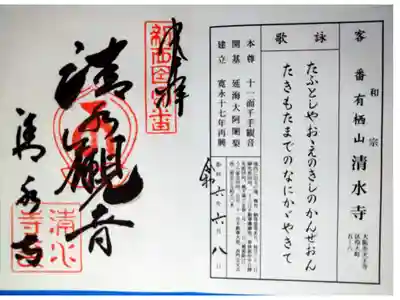 和宗
客番 有栖山 清水寺
大阪市天王寺
区伶人町
五-八
詠歌
たふとしやおゝえのきしのかんぜおん
たきもたまでのなにかゞやきて
本尊 十一面千手観音
開基 延海大阿闍梨
建立 寛永十七年再興
令和六年六月八日
奉拝
新西国客番
清水観音
清水寺
清水寺